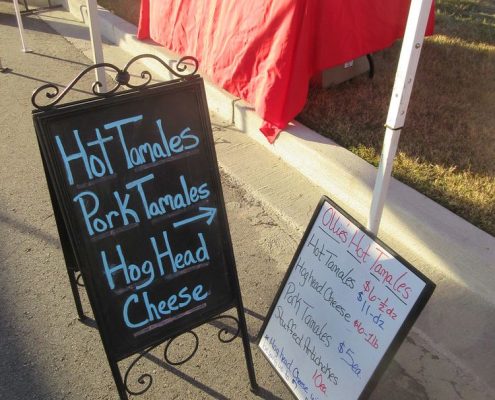 Hot Tamales
Pork Tamales
Hog Head
Cheese
Ollie's Hot Tamales
Hot Tamales $6-½dz
$11-dz
Hog head Cheese $6-1lb
Pork Tamales $5ea
Stuffed Artichokes 10ea
Hog Head Cheese